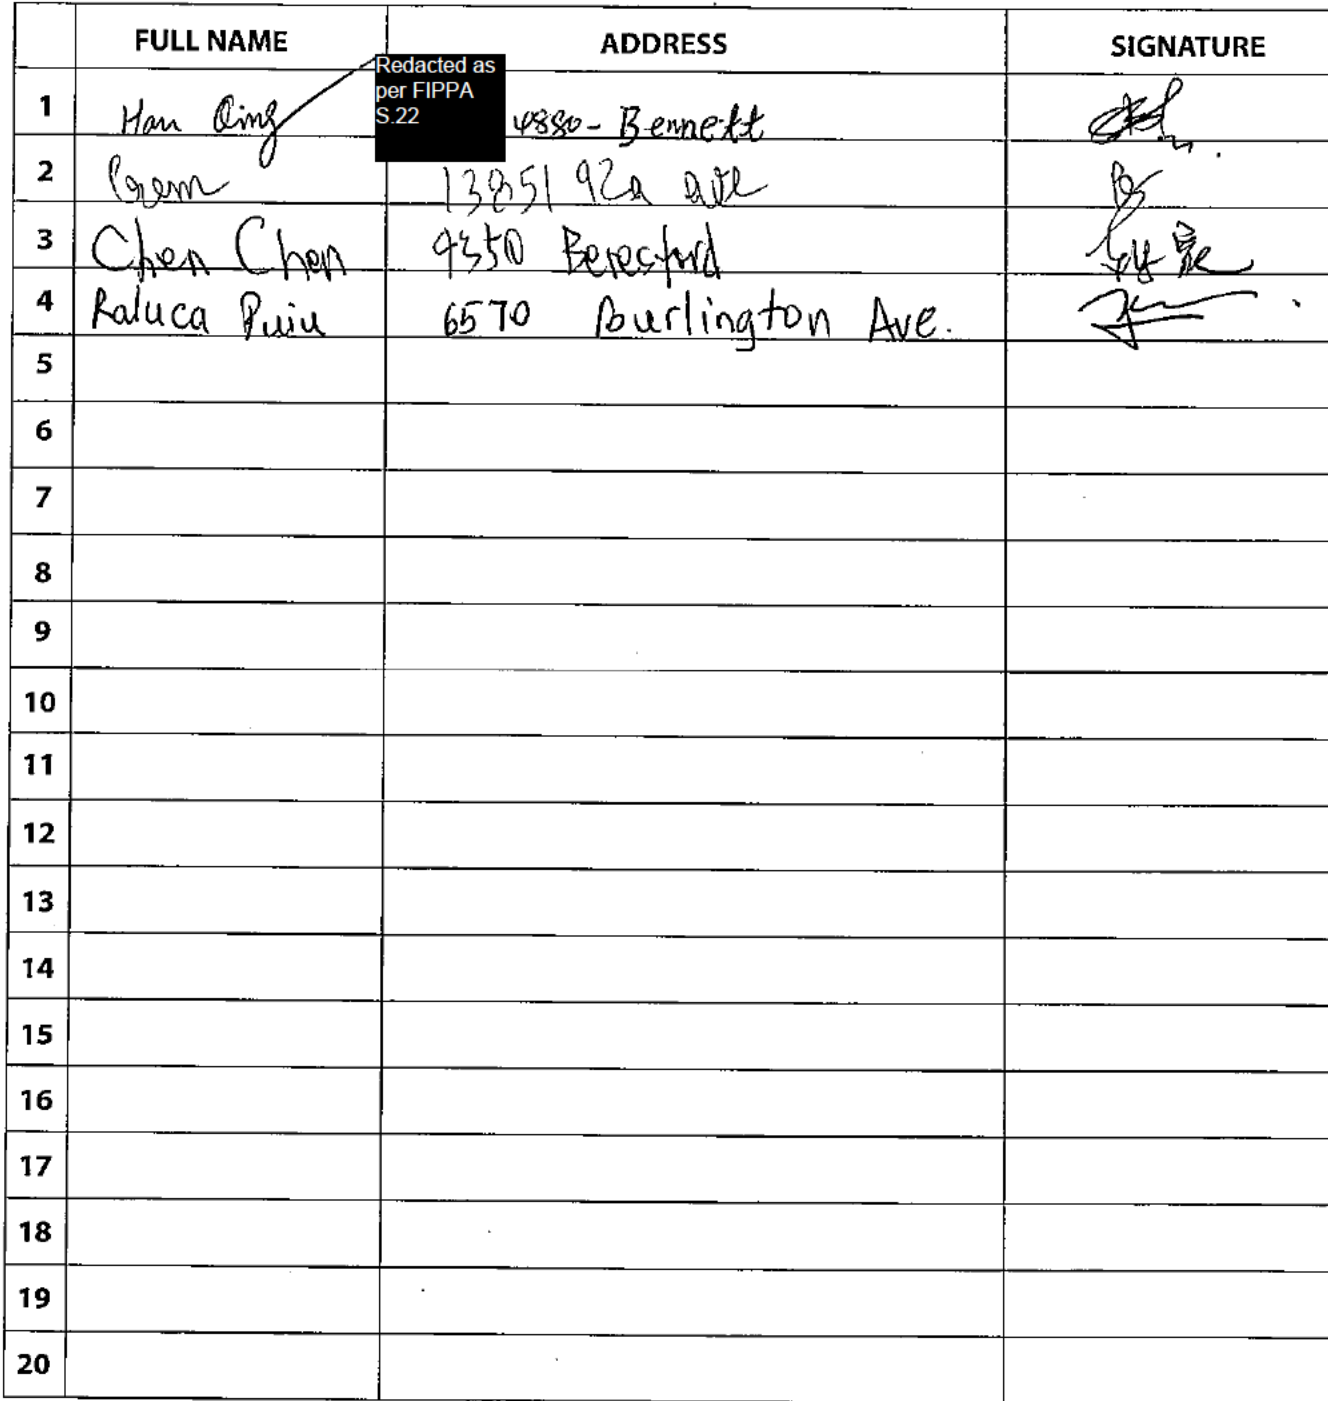 FULL NAME ADDRESS SIGNATURE
Redacted as
per FIPPA
S.22
1 Han Qing 4880- Bennett
2 13851 92a ave
3 Chen Chen 4350 Beresford
4 Raluca Puiu 6570 Burlington Ave.
5
6
7
8
9
10
11
12
13
14
15
16
17
18
19
20